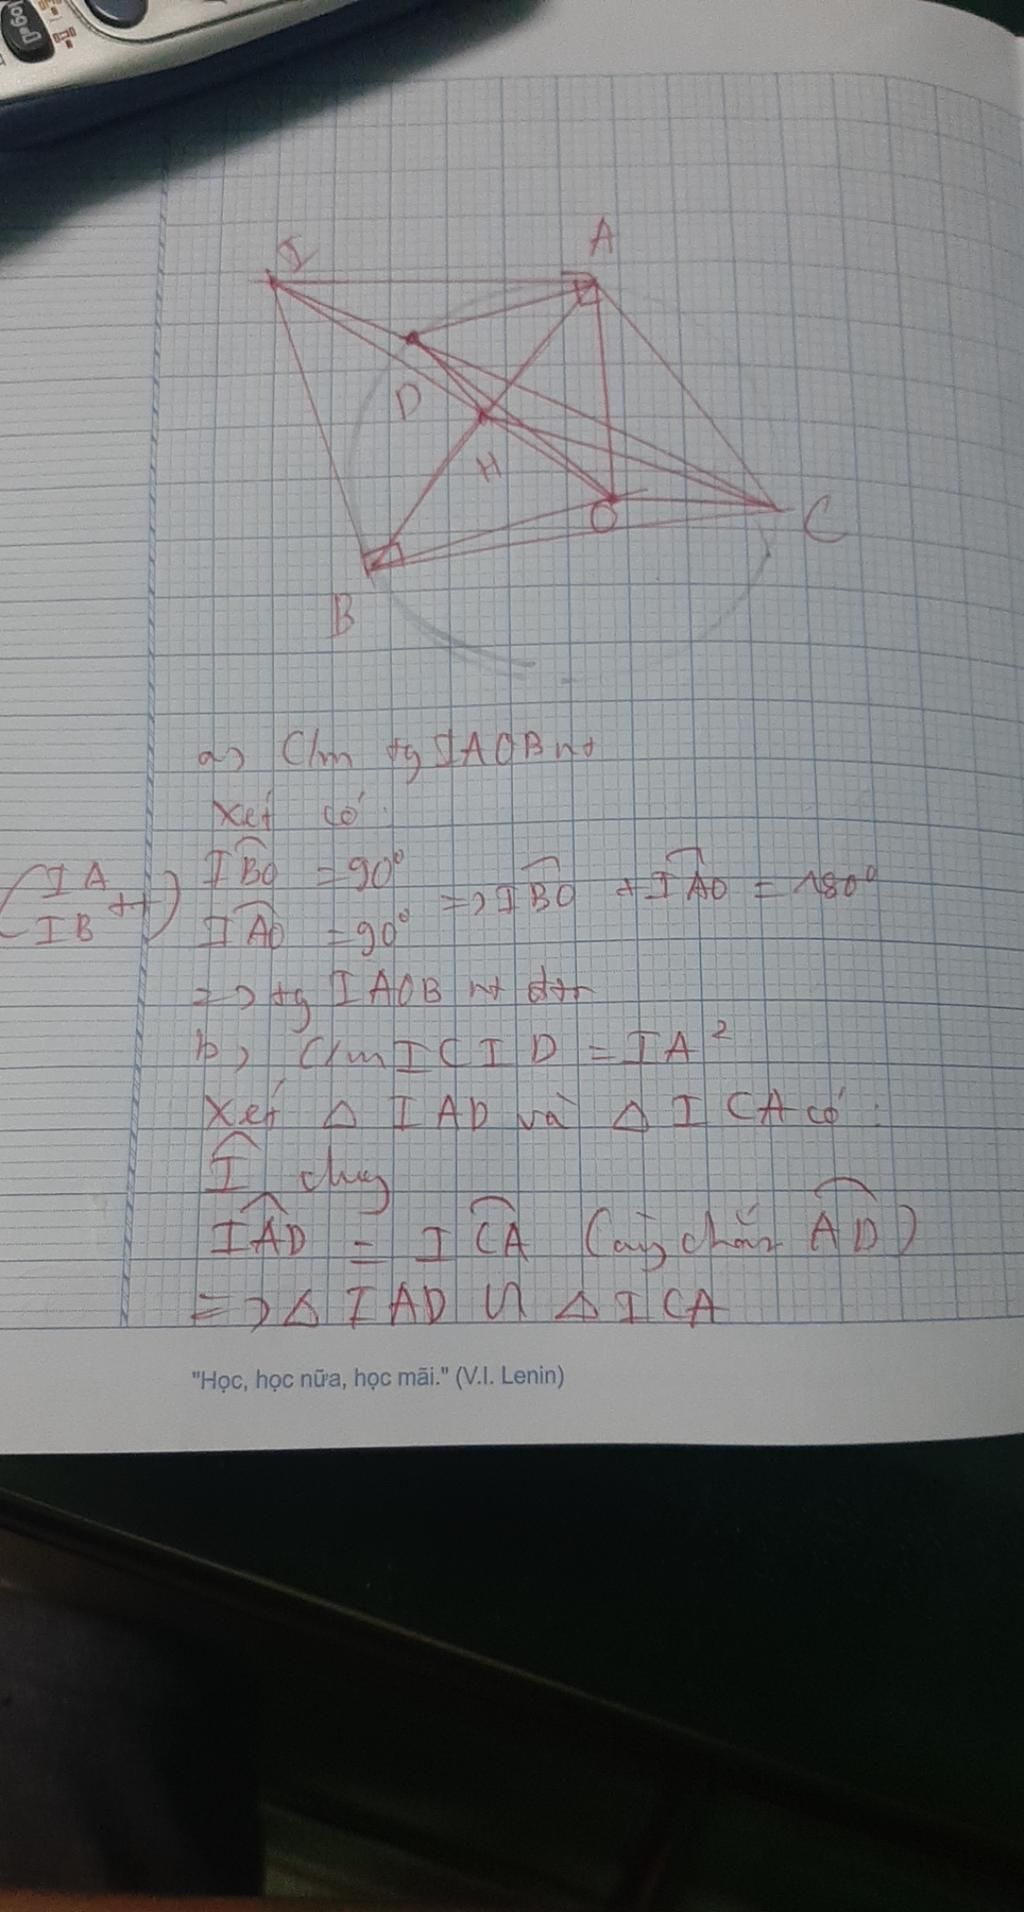 log
I
A
D
H
O
C
B
a) C/m tg IAOB nt
Xét có:
(IA, IB tt) IBO = 90°
IAO = 90° => IBO + IAO = 180°
=> tg IAOB nt đtr
b) C/m IC ID = IA²
Xét △ IAD và △ ICA có:
I chug
IAD = ICA (cùg chắn AD)
=> △ IAD ∽ △ ICA
"Học, học nữa, học mãi." (V.I. Lenin)